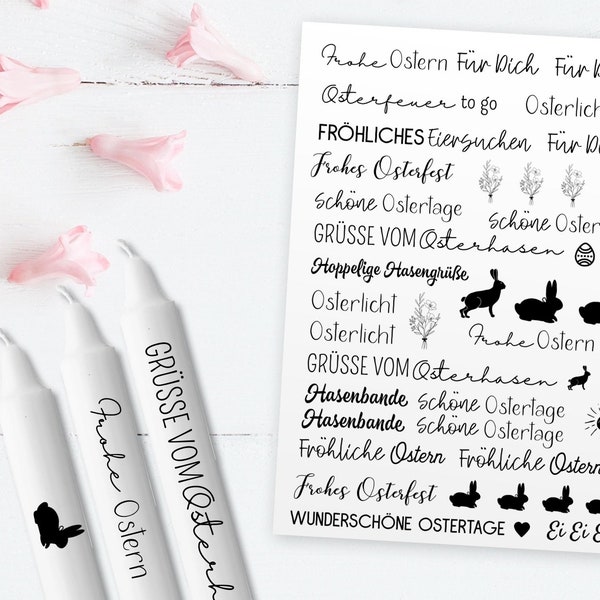 Frohe Ostern Für Dich Für D
Osterfeuer to go Osterlicht
FRÖHLICHES Eiersuchen Für Di
Frohes Osterfest
Schöne Ostertage Schöne Oster
GRÜSSE VOM Osterhasen
Hoppelige Hasengrüße
Osterlicht
Osterlicht Frohe Ostern
GRÜSSE VOM Osterhasen
Hasenbande Schöne Ostertage
Hasenbande Schöne Ostertage
Fröhliche Ostern Fröhliche Ostern
Frohes Osterfest
WUNDERSCHÖNE OSTERTAGE Ei Ei E
Frohe Ostern
GRÜSSE VOM Osterh